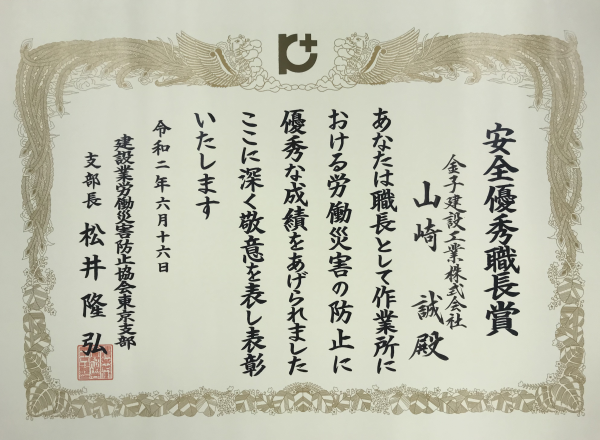 安全優秀職長賞
金子建設工業株式会社
山崎 誠殿
あなたは職長として作業所に
おける労働災害の防止に
優秀な成績をあげられました
ここに深く敬意を表し表彰
いたします
令和二年六月十六日
建設業労働災害防止協会東京支部
支部長 松井隆弘